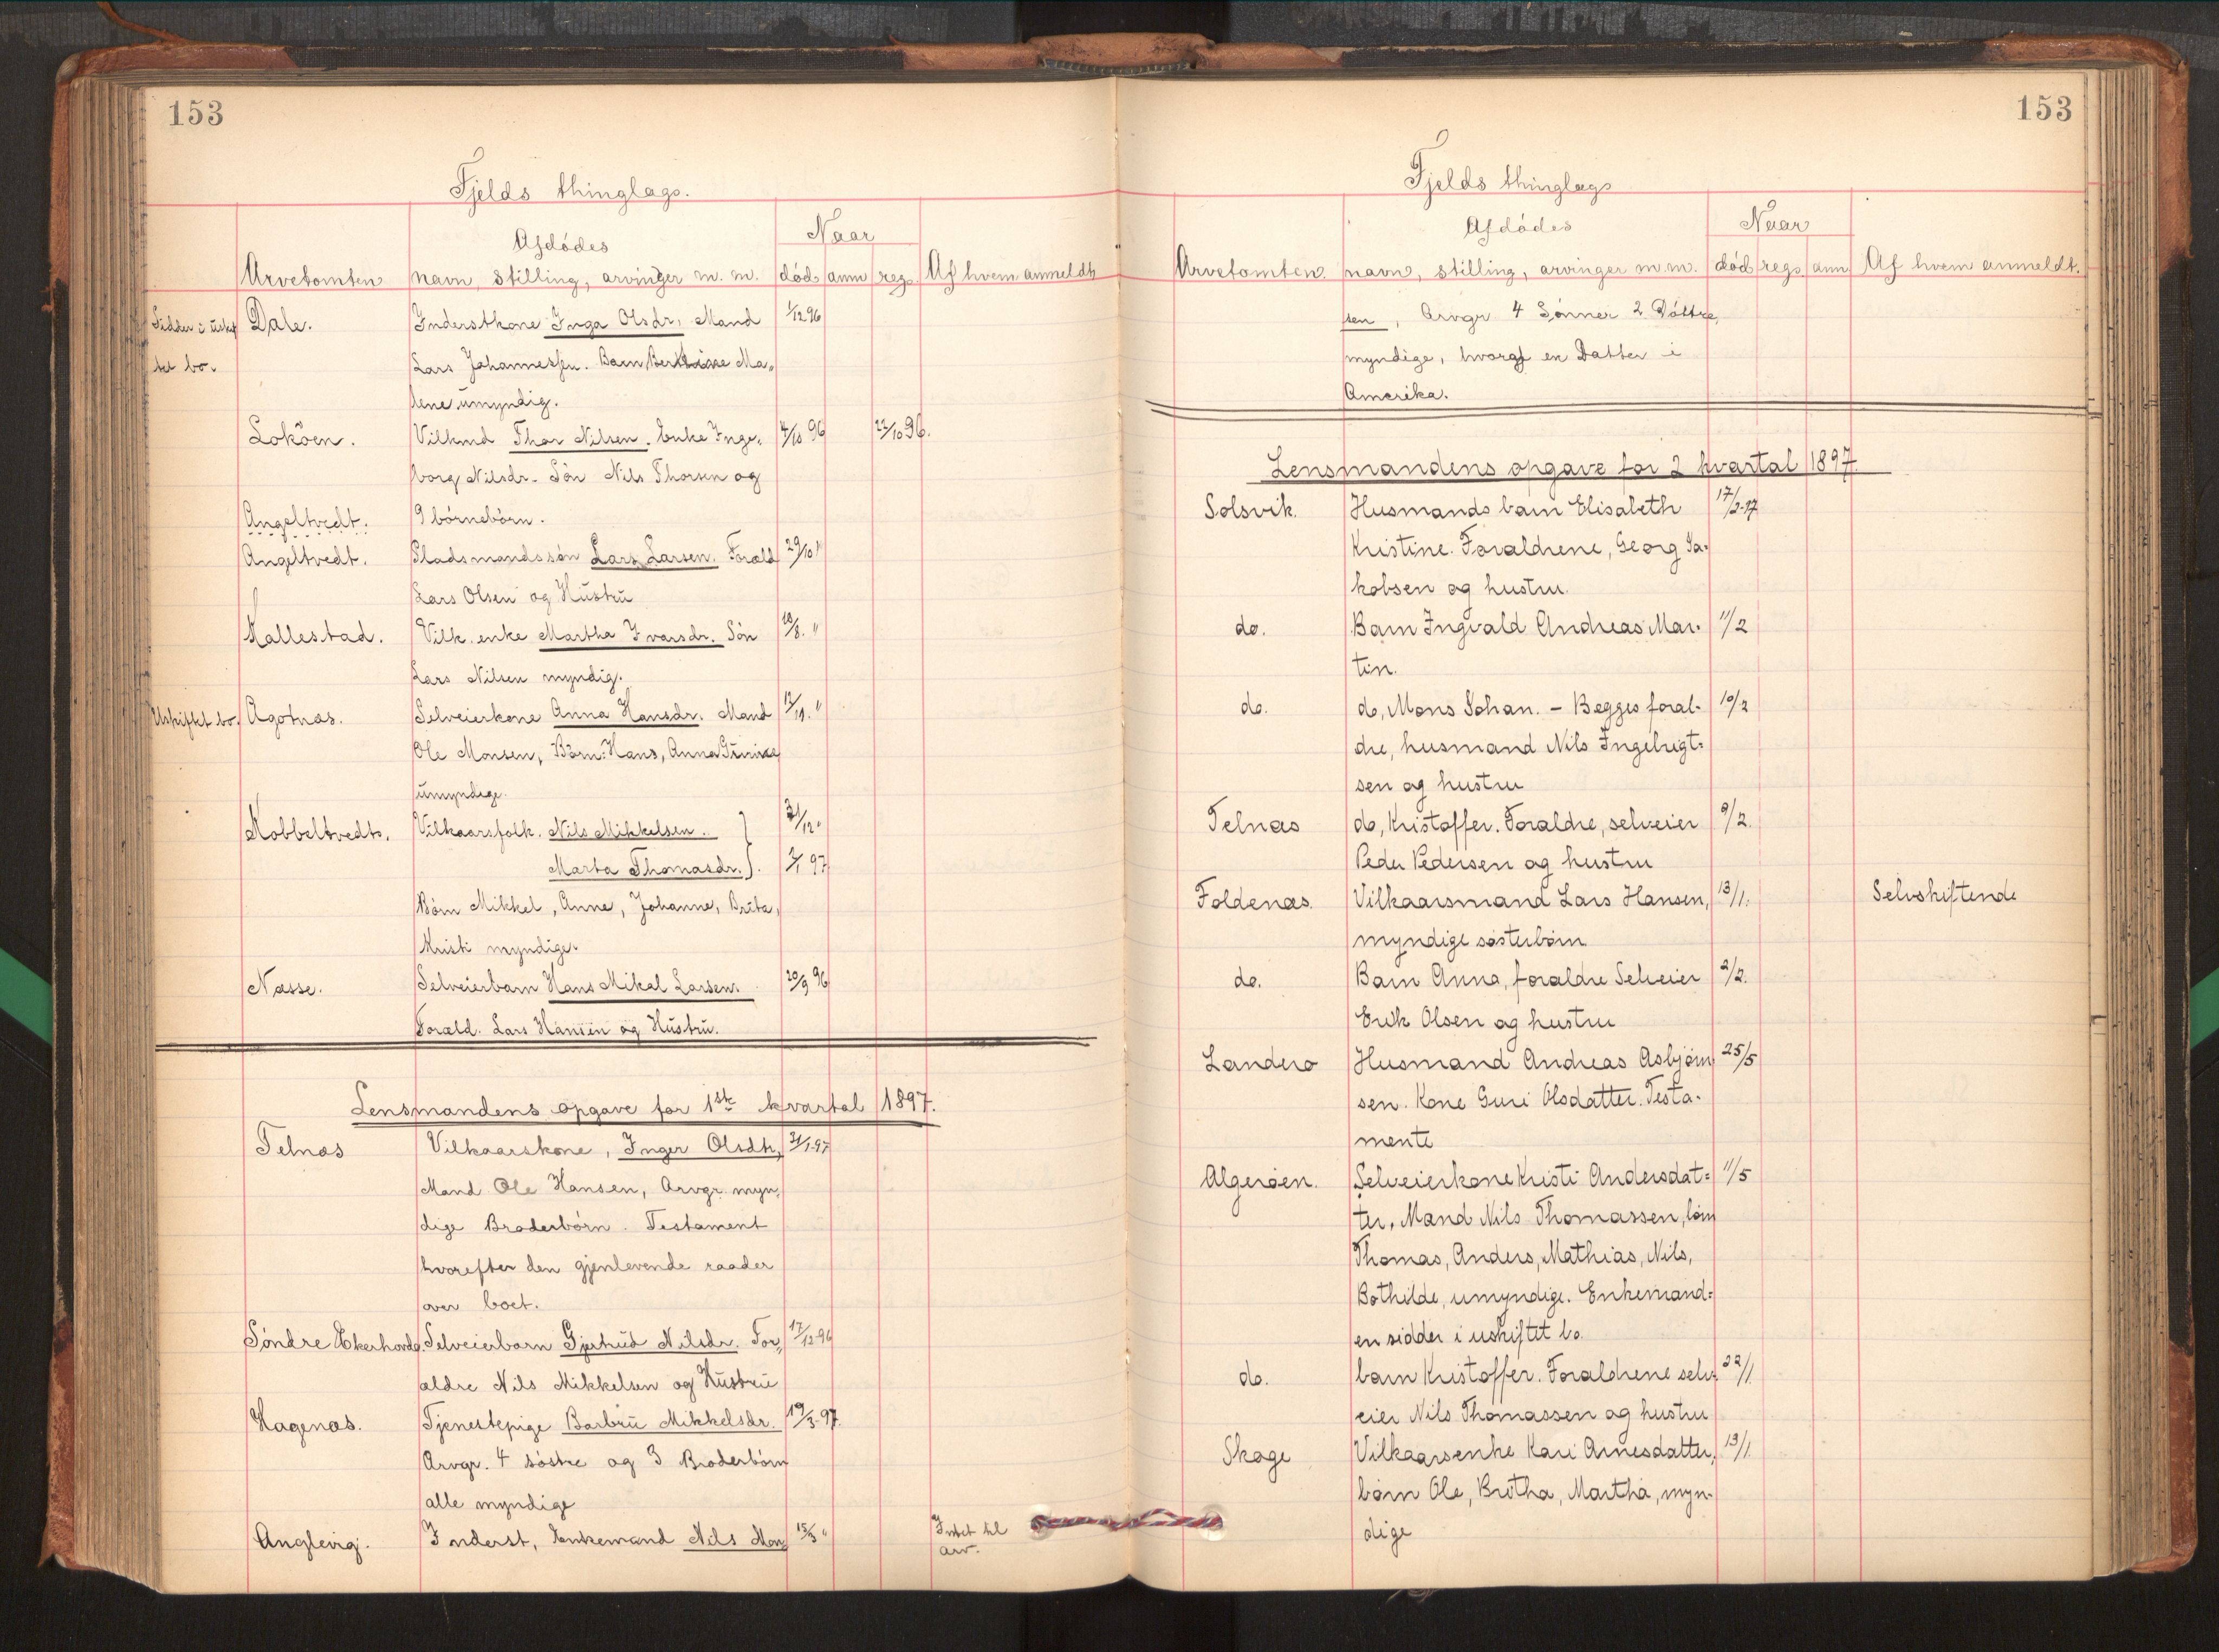 153
Fjelds thinglags.
Naar
Afdødes
Arvetomten navn, stilling, arvinger m. m. død anm reg. Af hvem anmeldt
Sidder i uskif Dale. Inderstkone Inga Olsdr, Mand 1/12 96
tet bo. Lars Johannessen. Barn Ma„
lene umyndig.
Lokøen. Vilkmd Thor Nilsen. Enke Inge„ 4/10 96 22/10 96.
borg Nilsdr. Søn Nils Thorsen og
Angeltvedt. 9 børnebørn.
Angeltvedt. Pladsmandssøn Lars Larsen. Foræld 29/10 "
Lars Olsen og Hustru
Kallestad. Vilk. enke Martha Ivarsdr. Søn 10/8. "
Lars Nilsen myndig.
Uskiftet bo. Agotnæs. Selveierkone Anna Hansdr. Mand "
Ole Monsen, Børn: Hans, Anna
umyndige.
Kobbeltvedt. Vilkaarsfolk. Nils Mikkelsen.. } 31/12 "
Marta Thomasdr. } 97
Børn Mikkel, Anne, Johanne, Brita,
Kristi myndige.
Næsse. Selveierbarn Hans Mikal Larsen. 20/9 96
Foræld. Lars Hansen og Hustru.
Lensmandens opgave for 1ste kvartal 1897.
Telnæs Vilkaarskone, Inger Olsdtr,
Mand Ole Hansen, Arvgr. myn„
dige Broderbørn. Testament
hvorefter den gjenlevende raader
over boet.
Søndre Ekerhovde. Selveierbarn Gjertrud Nilsdr. For„ 17/12 96
ældre Nils Mikkelsen og Hustru
Hagenæs. Tjenestepige Barbru Mikkelsdr. 19/3 97.
Arvgr. 4 søstre og 3 Broderbørn
alle myndige
Anglevig. Inderst, Enkemand Nils Mon 15/3 " Intet til
arv.
153
Fjelds thinglags
Naar
Afdødes
Arvetomten. navn, stilling, arvinger m.m. død regs. anm Af hvem anmeldt.
sen, Arvgr 4 Sønner 2 Døttre,
myndige, hvoraf en Datter i
Amerika.
Lensmandens opgave for 2 kvartal 1897.
Solsvik. Husmands barn Elisabeth 17/2 97
Kristine. Forældrene, Georg Ja=
kobsen og hustru.
do. Barn Ingvald Andreas Mar= 11/2
tin.
do. do, Mons Johan. – Begges foræl= 10/2
dre, husmand Nils Ingebrigt=
sen og hustru
Telnæs do, Kristoffer. Forældre, selveier 9/2.
Peder Pedersen og hustru
Foldenæs. Vilkaarsmand Lars Hansen, 13/1. Selvskiftende
myndige søsterbørn
do. Barn Anna, forældre Selveier 2/2.
Erik Olsen og hustru
Landero Husmand Andreas Asbjørn 25/5
sen. Kone Guri Olsdatter. Testa=
mente
Algerøen. Selveierkone Kristi Andersdat= 11/5
ter, Mand Nils Thomassen, børn
Thomas, Anders, Mathias, Nils,
Bothilde, umyndige. Enkemand=
en sidder i uskiftet bo.
do. barn Kristoffer. Forældrene selv= 22/1
eier Nils Thomassen og hustru
Skoge Vilkaarsenke Kari Arnesdatter, 13/1
børn Ole, Britha, Martha, myn=
dige